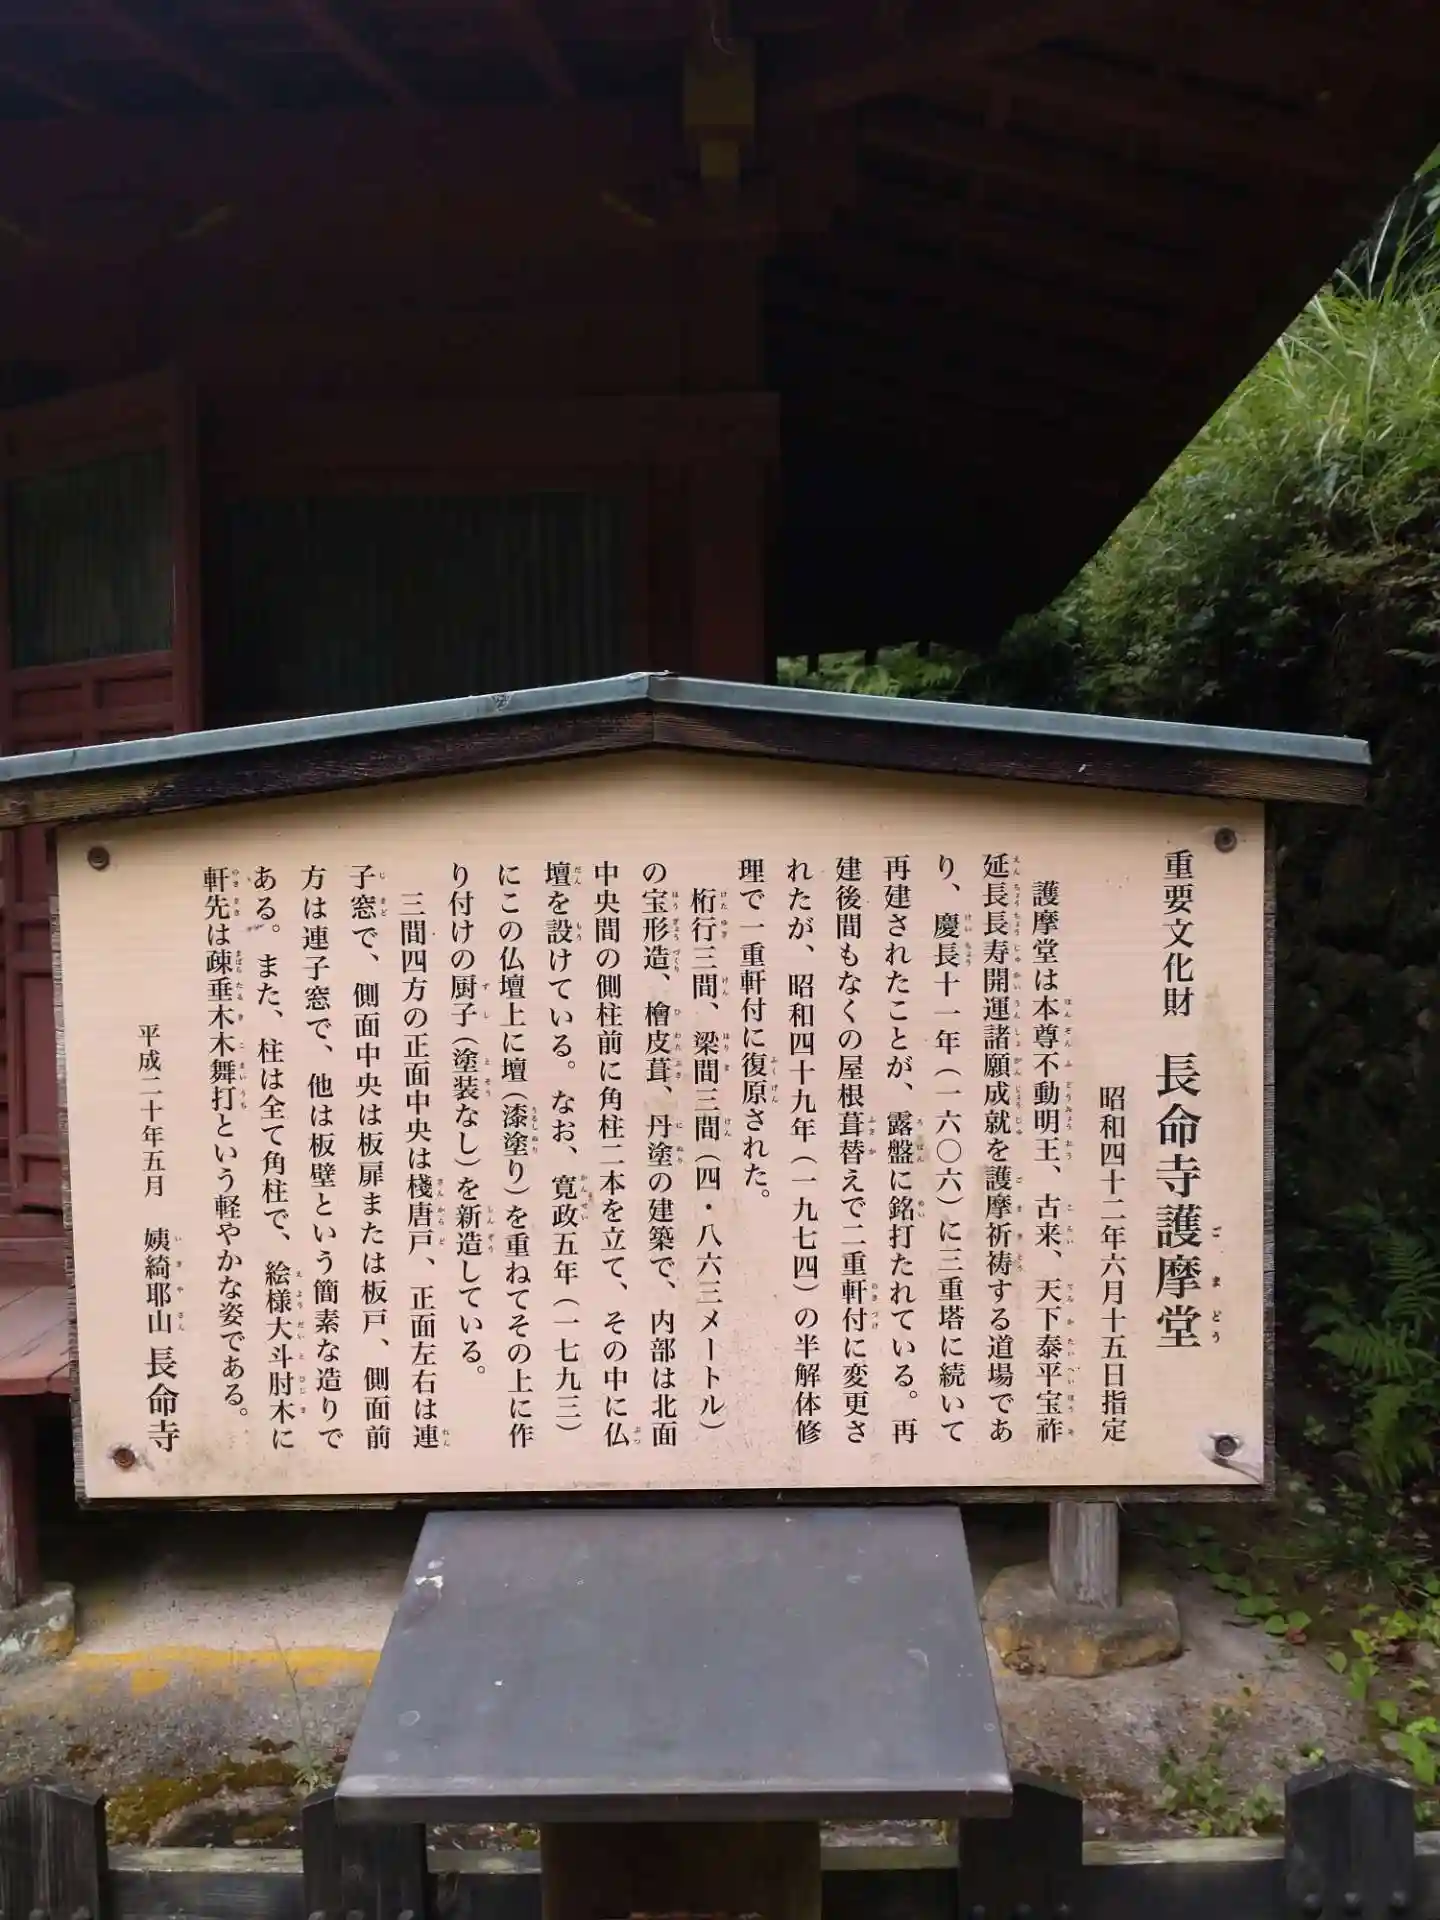 重要文化財　長命寺護摩堂
昭和四十二年六月十五日指定
護摩堂は本尊不動明王、古来、天下泰平宝祚
延長長寿開運諸願成就を護摩祈祷する道場であ
り、慶長十一年（一六〇六）に三重塔に続いて
再建されたことが、露盤に銘打たれている。再
建後間もなくの屋根葺替えで二重軒付に変更さ
れたが、昭和四十九年（一九七四）の半解体修
理で一重軒付に復原された。
桁行三間、梁間三間（四・八六三メートル）
の宝形造、檜皮葺、丹塗の建築で、内部は北面
中央間の側柱前に角柱二本を立て、その中に仏
壇を設けている。なお、寛政五年（一七九三）
にこの仏壇上に壇（漆塗り）を重ねてその上に作
り付けの厨子（塗装なし）を新造している。
三間四方の正面中央は棧唐戸、正面左右は連
子窓で、側面中央は板扉または板戸、側面前
方は連子窓で、他は板壁という簡素な造りで
ある。また、柱は全て角柱で、絵様大斗肘木に
軒先は疎垂木木舞打という軽やかな姿である。
平成二十年五月　姨綺耶山 長命寺